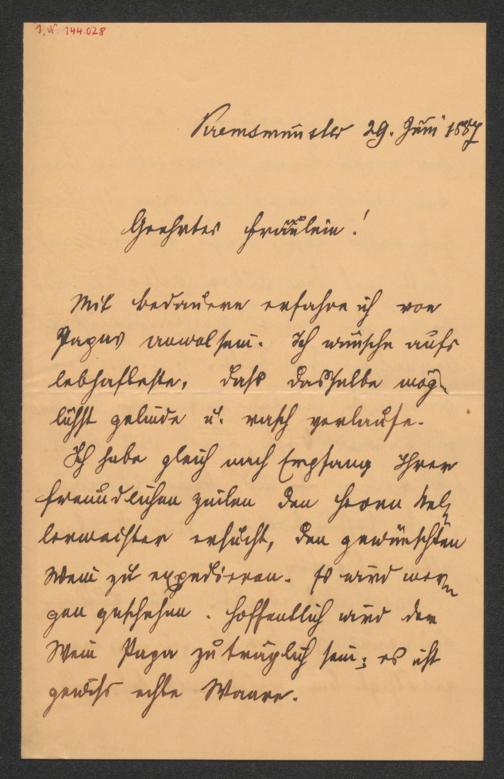 I.N. 144.028
Kremsmünster 29. Juni 1887
Geehrtes Fräulein!
Mit Bedauern erfahre ich von
Papas Unwolsein. Ich wünsche aufs
lebhafteste, daß dasselbe mög-
lichst gelinde u. rasch verlaufe.
Ich habe gleich nach Empfang Ihrer
freundlichen Zeilen den Herrn Kel-
lermeister ersucht, den gewünschten
Wein zu expedieren. Es wird mor-
gen geschehen. Hoffentlich wird der
Wein Papa zuträglich sein; es ist
gewiß echte Waare.